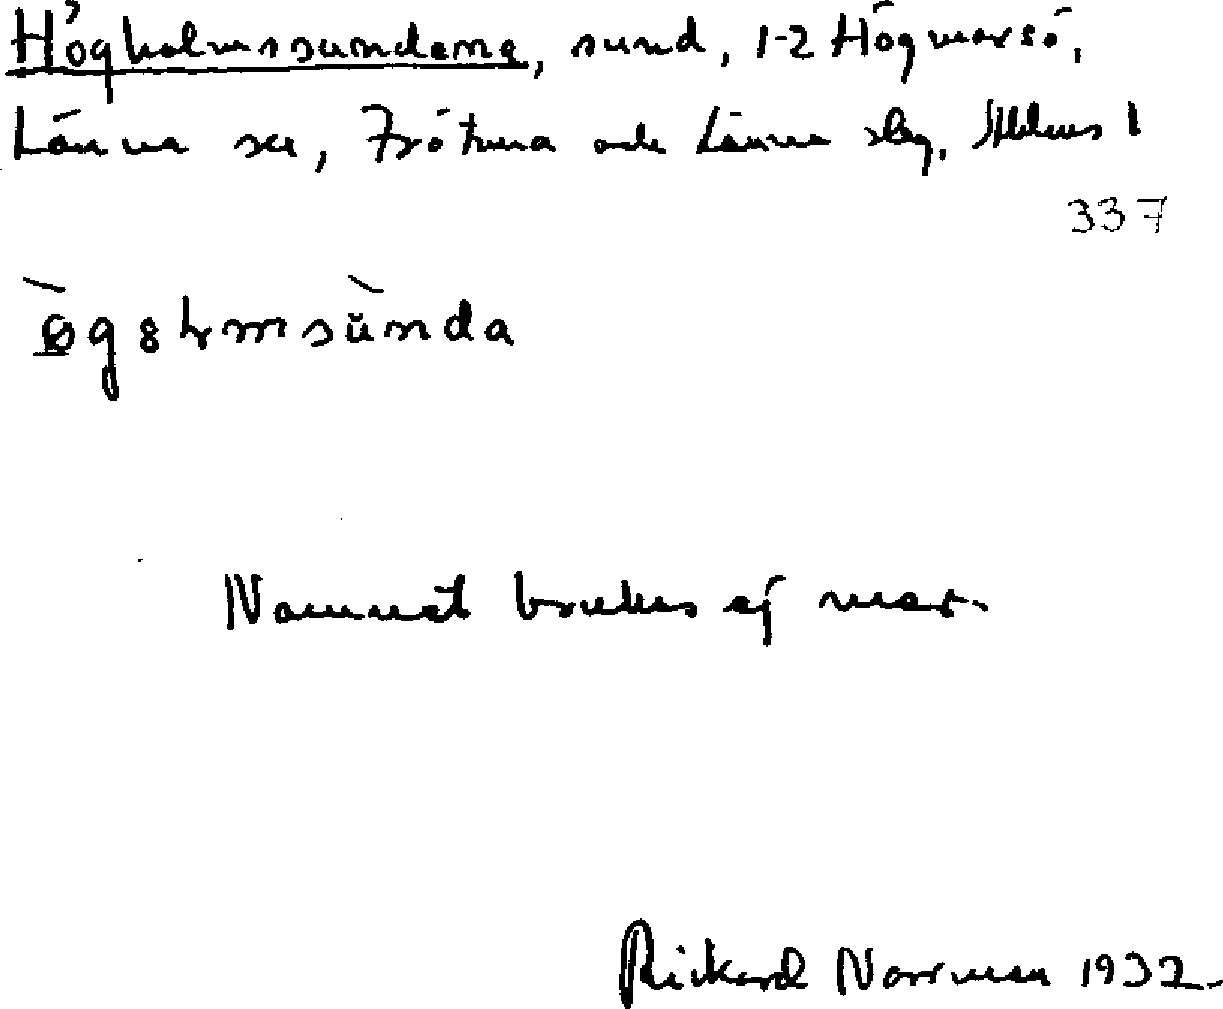 Högholmssundena, sund, 1-2 Högmarsö,
Länna sn, Frötuna och Länna slg, Sthlms l
337
Nammet brukas ej mer.
Rickard Norrman 1932.